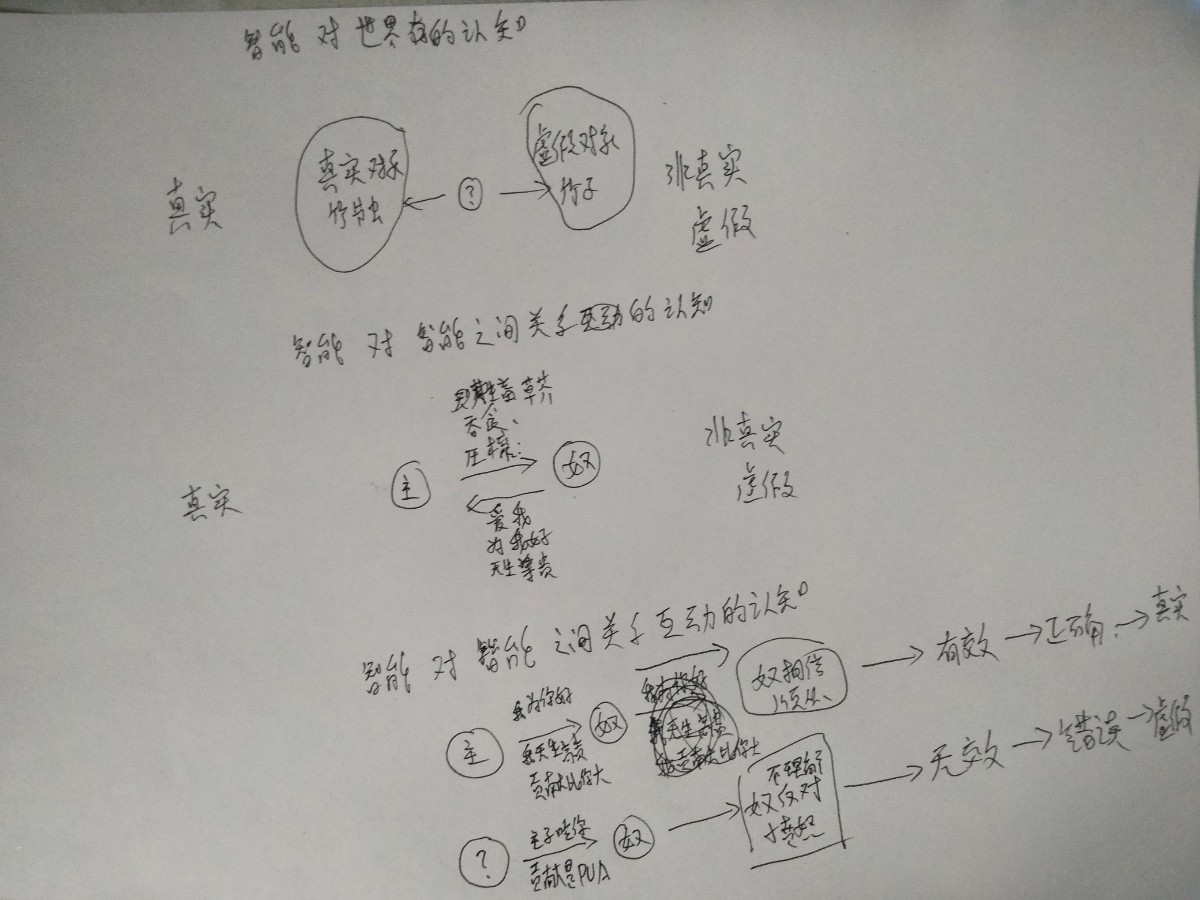 智能对世界存的认知
真实
真实对承
竹节虫
?
虚假对承
竹子
非真实
虚假
智能对智能之间关系互动的认知
真实
主
草芥
吞食、
压榨:
奴
爱我
为我好
天生尊贵
非真实
虚假
智能对智能之间关系互动的认知
主
我为你好
我天生高贵
贡献比你大
奴
奴相信
有效→正确→真实
?
主子吃你
贡献是PUA
奴
不理解
奴反对
愤怒
无效→错误→虚假